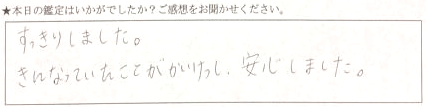 ★本日の鑑定はいかがでしたか？ご感想をお聞かせください。
すっきりしました。
きになっていたことがかいけつし、安心しました。